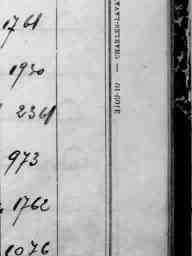 1761
1930
2361
973
1762
1076
— CHARLES-LAVA